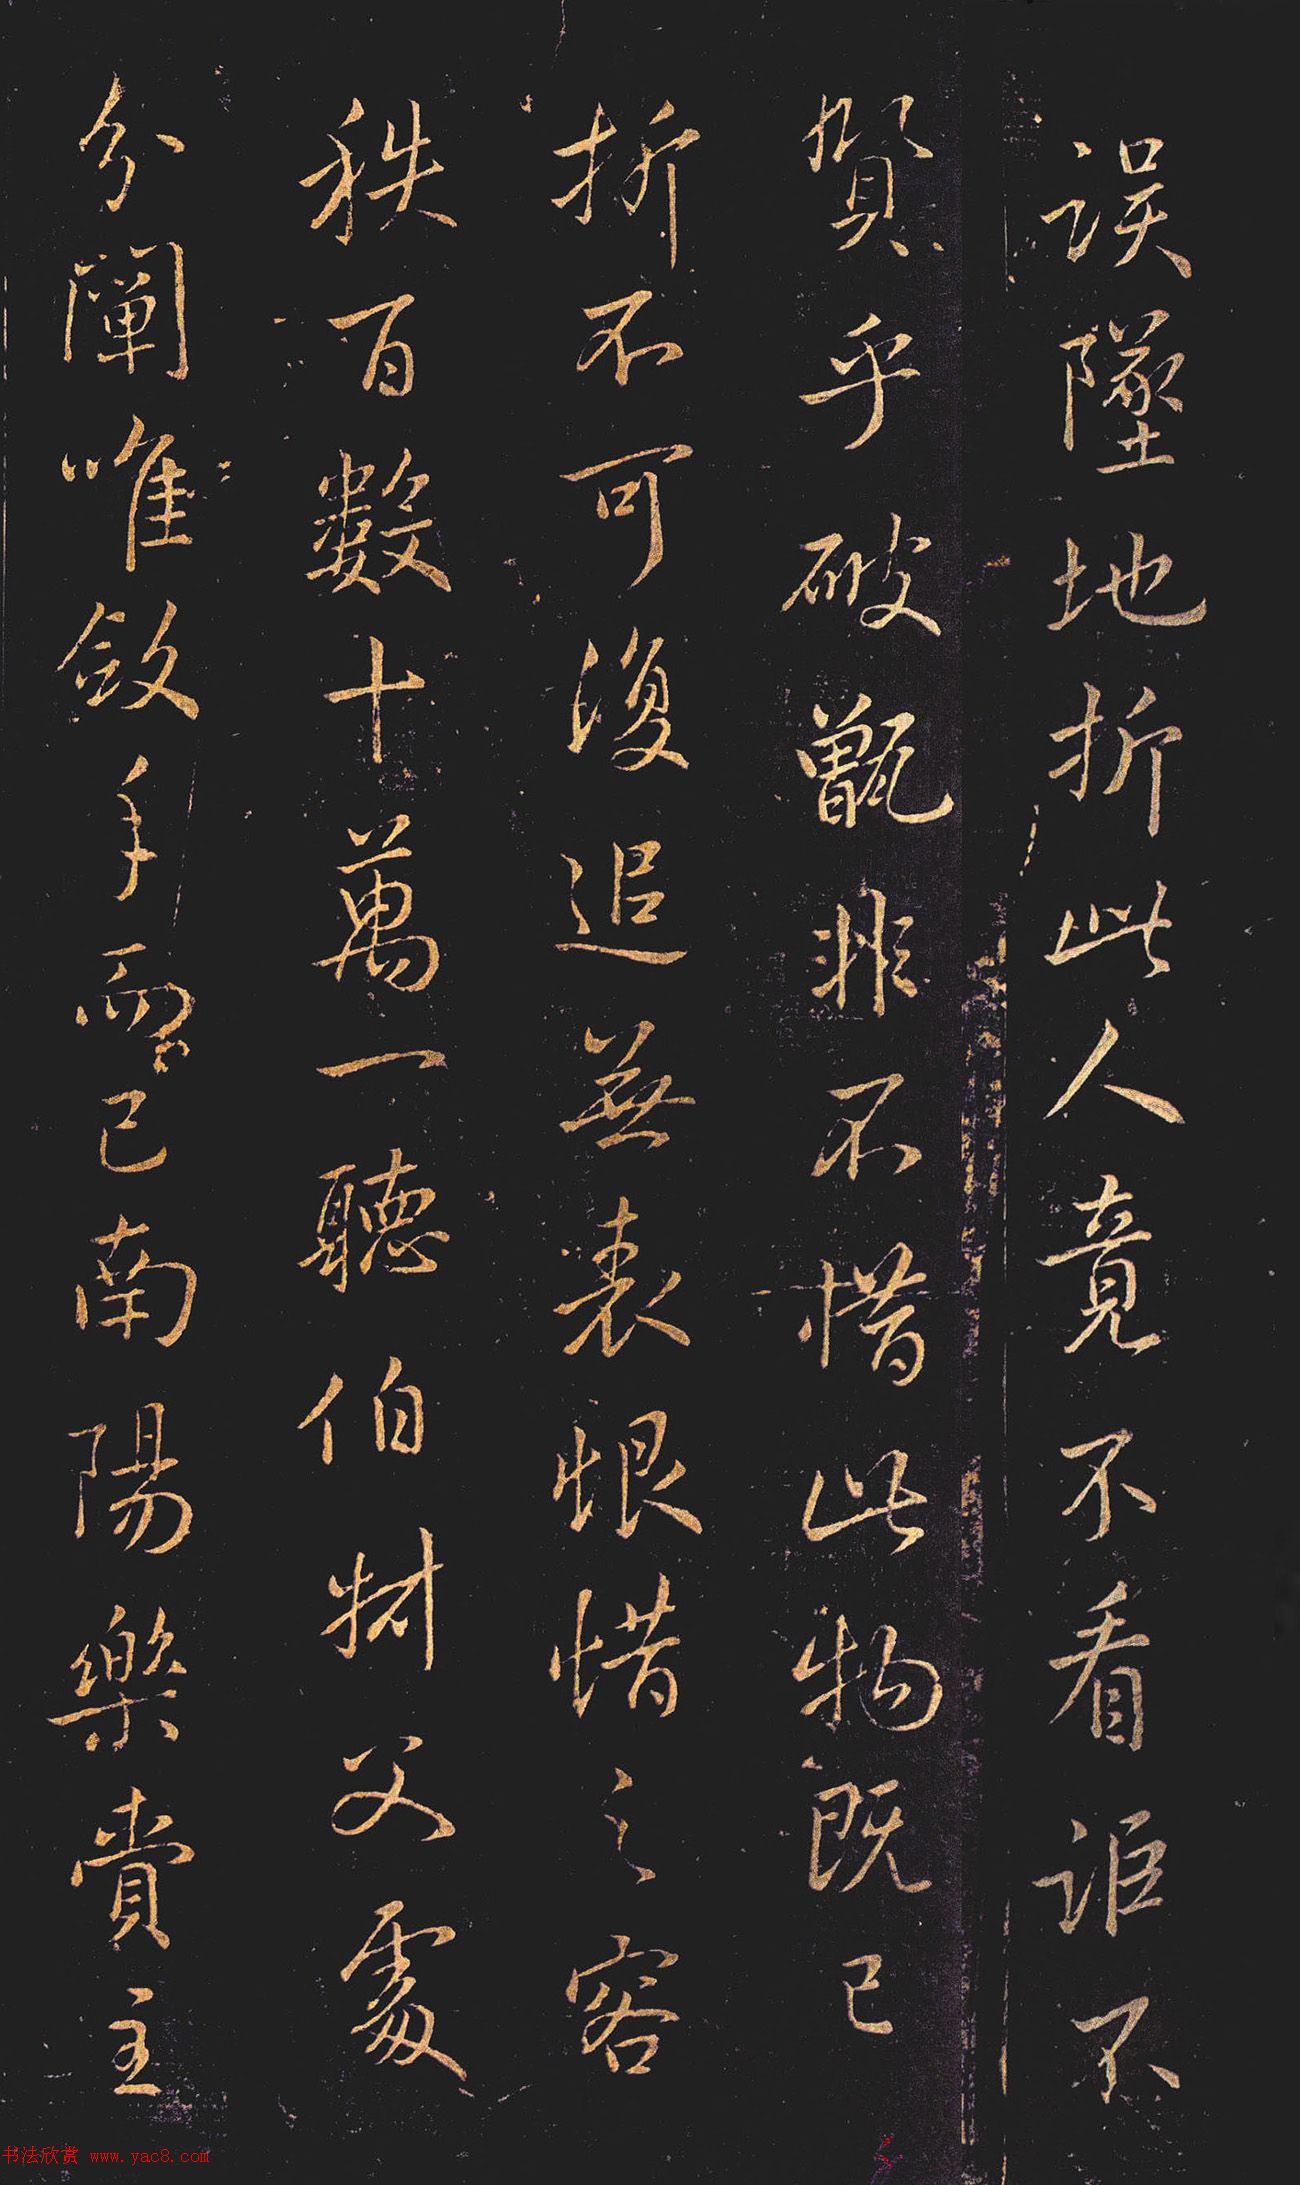 誤墜地折此人竟不看詎不
賢乎破甑非不惜此物既已
折不可復追無表恨惜之容
秩百數十萬一聽伯材父處
分闡唯斂手而已南陽樂賣主
书法欣赏 www.yac8.com